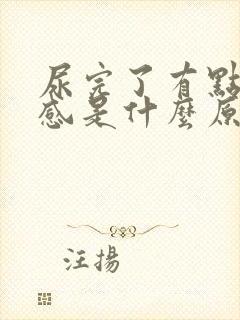 尿完了有點
感是什麼原
汪揚